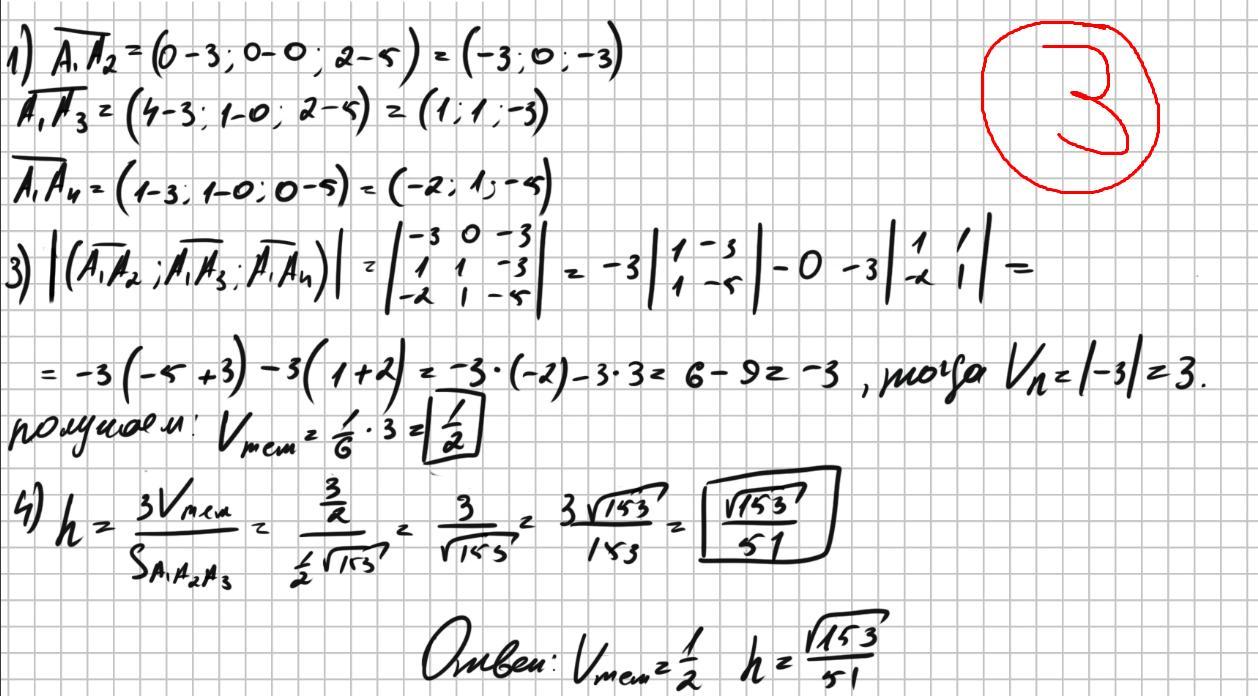 1) A₁A₂ = (0-3; 0-0; 2-5) = (-3; 0; -3)
3
A₁A₃ = (4-3; 1-0; 2-5) = (1; 1; -3)
A₁A₄ = (1-3; 1-0; 0-5) = (-2; 1; -5)
3) |(A₁A₂; A₁A₃; A₁A₄)| = |-3 0 -3; 1 1 -3; -2 1 -5| = -3 |1 -3; 1 -5| - 0 -3 |1 1; -2 1| =
= -3(-5+3) -3(1+2) = -3·(-2)-3·3 = 6-9 = -3, тогда Vп = |-3| = 3.
получаем: Vтет = 1/6 · 3 = 1/2
4) h = 3Vтет/S A₁A₂A₃ = 3/2 / 1/2 √153 = 3/√153 = 3√153/153 = √153/51
Ответ: Vтет = 1/2 h = √153/51